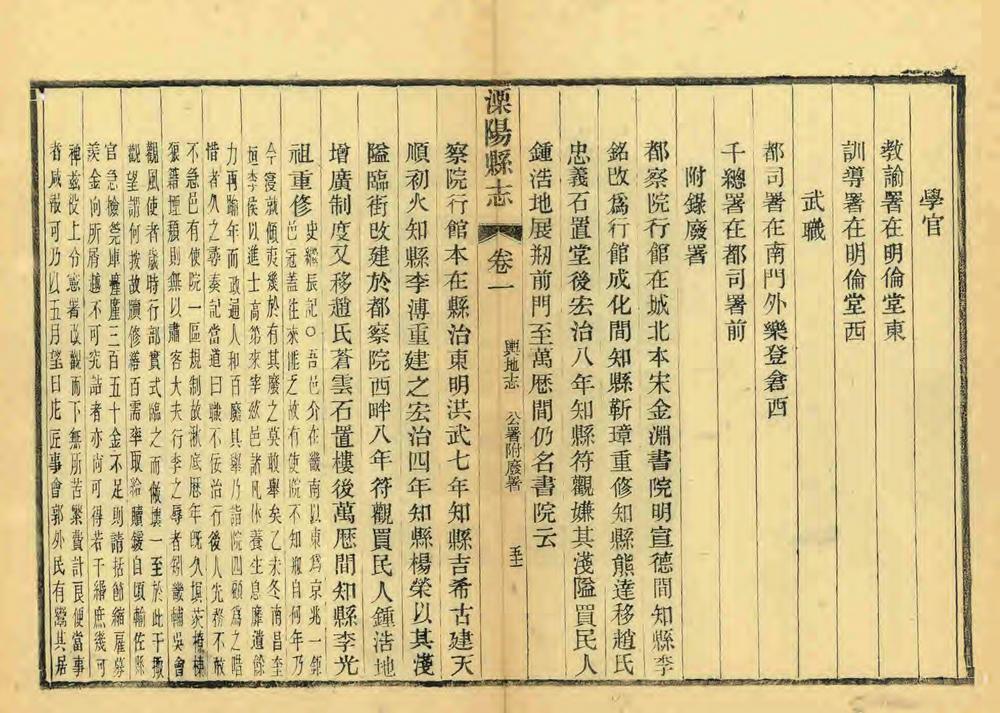 學官
教諭署在明倫堂東
訓導署在明倫堂西
武職
都司署在南門外樂登倉西
千總署在都司署前
附錄廢署
都察院行館在城北本宋金淵書院明宣德間知縣李
銘改爲行館成化間知縣靳璋重修知縣熊達移趙氏
忠義石置堂後宏治八年知縣符觀嫌其淺隘買民人
鍾浩地展剏前門至萬厯間仍名書院云
溧陽縣志
卷一
輿地志
公署附廢署
察院行館本在縣治東明洪武七年知縣吉希古建天
順初火知縣李溥重建之宏治四年知縣楊榮以其淺
隘臨街改建於都察院西畔八年符觀買民人鍾浩地
增廣制度又移趙氏蒼雲石置樓後萬厯間知縣李光
祖重修
史繼辰記○吾邑介在畿南以東爲京兆一鉅
邑冠蓋往來匪乏故有使院不知剏自何年乃
今寖就傾夷幾於有其廢之莫敢舉矣乙未冬南昌奎
垣李侯以進士高第來宰兹邑諸凡休養生息靡遺餘
力再踰年而政通人和百廢具舉乃詣院四顧爲之喟
惜者久之尋奏記當道曰職不佞治行後人先務不敢
不急邑有使院一區規制故湫底厯年既久塡茨榱棟
狼籍堙穨則無以肅客大夫行李之辱者鉅畿輔吳會
觀風使者歲時行部實式臨之而儆壞一至於此于
觀望謂何按故牘修繕百需率取給贖鍰自頃輸佐縣
官急檢筦庫羨三百五十金不足則請括節縮雇募
羨金向所屑越不可究詰者亦尚可得若干緡庶幾可
裨兹役上分憲署改觀而下無所苦繁費計良便當事
者咸報可乃以五月望日庀匠事會郭外民有鬻其居